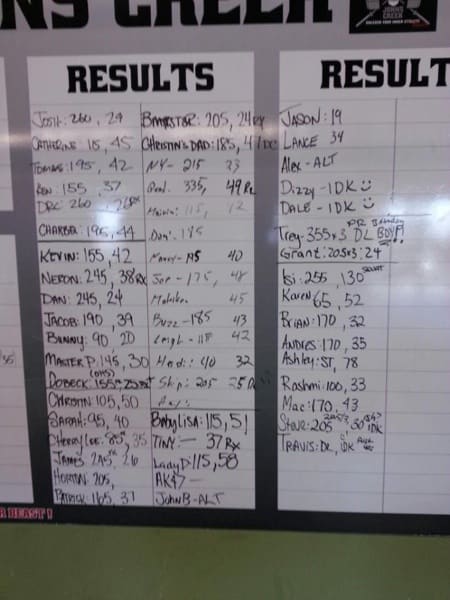 NS CREEK
JOHNS CREEK
RESULTS
JOSH: 260, 29
CATHERINE 115, 45
TOMAS: 195, 42
BEN: 155, 37
DRC: 260
CHARBA: 195, 44
KEVIN: 155, 42
NERON: 245, 38RX
DAN: 245, 24
JACOB: 190, 39
BUNNY: 90, 20
MASTER P: 145, 30
DOBECK:
CHRISTIN 105, 50
SARAH: 95, 40
CHERRY LEE: 85, 35
JAMES: 245, 26
HORTON: 205,
PATRICK: 165, 37
205, 24RX
CHRISTIN'S DAD: 185, 47
NY- 215 33
335, 49 Rx
115, 12
Dan: 185
195 40
Joe - 175, 48
45
Buzz - 185 43
Leigh - 118 42
Heidi: 40 32
Skip: 205 25
BABY LISA: 115, 51
TINY: — 37 RX
LADY D: 115, 58
AK47 —
JOHN B - ALT
RESULT
JASON: 19
LANCE 34
Alex - ALT
Dizzy - IDK
DALE - IDK
Trey - 355x3 DL PR Birthday BOY!!!
Grant: 205x3: 24
Isi: 255, 130 SQUAT
Karen 65, 52
BRIAN: 170, 32
ANDRES: 170, 35
Ashley: ST, 78
Rashmi: 100, 33
Mac: 170, 43
Steve: 205
TRAVIS: DL, IDK
R BEAST!